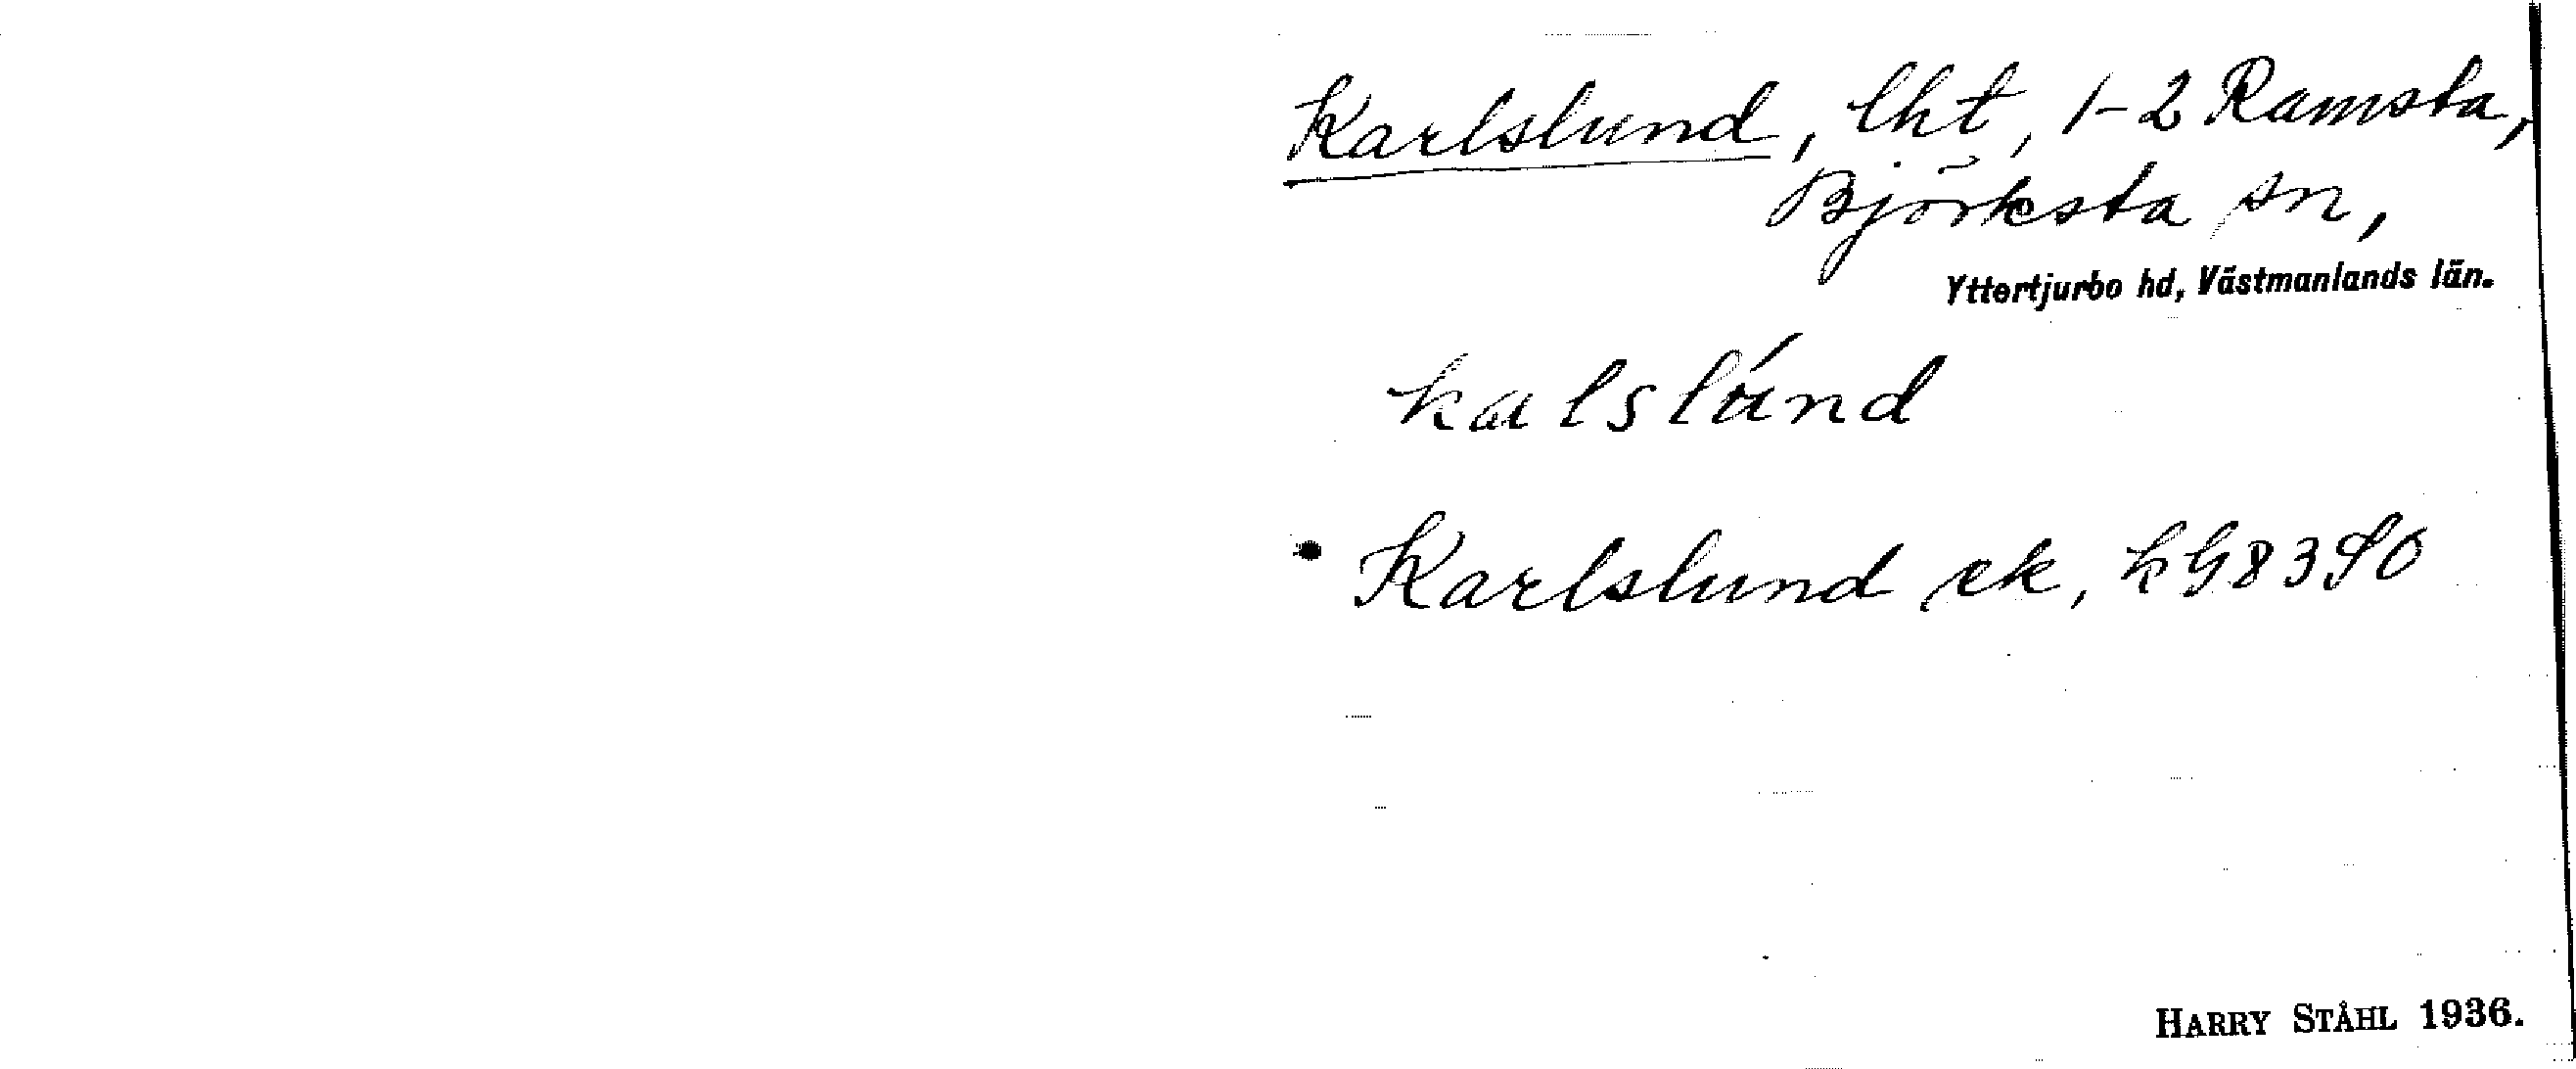 Karlslund, lht, 1-2 Ramsta,
Björksta sn,
Yttertjurbo hd, Västmanlands län.
kalslúnd
• Karlslund ek,
HARRY STÅHL 1936.